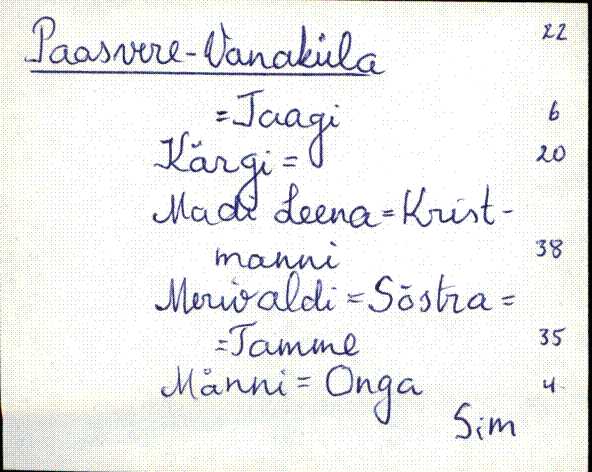 Paasvere-Vanaküla 22
=Jaagi 6
Kärgi= 20
Madi Leena=Krist-
manni 38
Merivaldi=Sõstra=
=Tamme 35
Männi=Onga 4
Sim